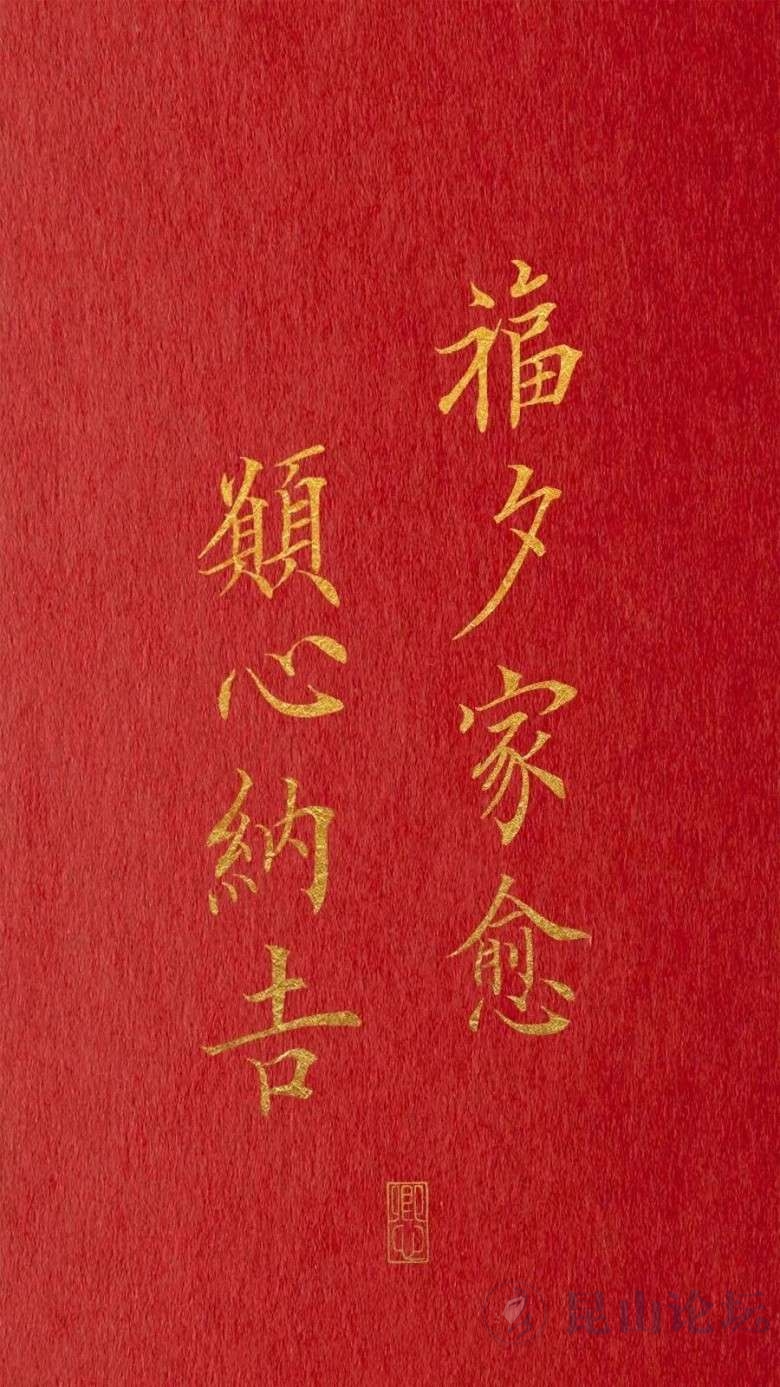 福夕家愈
顚心納吉
昆山论坛